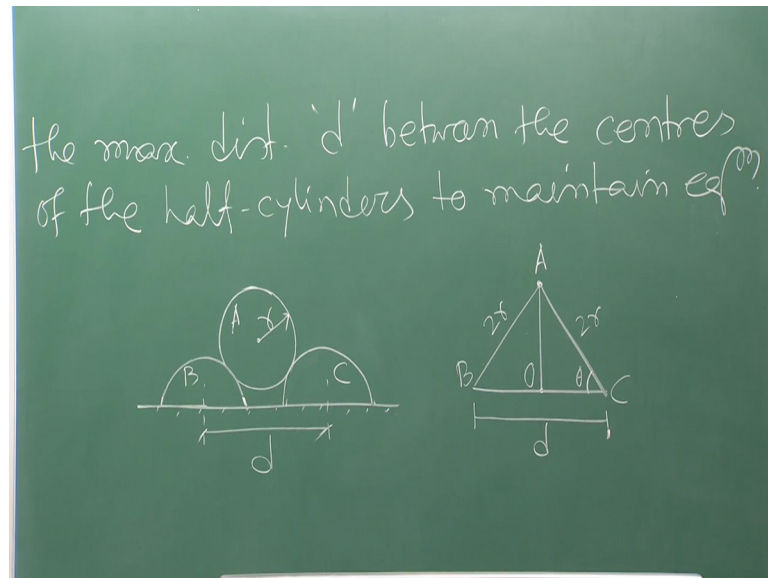 the max. dist. 'd' betwan the centres
of the half-cylinders to maintain eqᵐ?
A
r
B
C
d
A
2r
2r
B
O
θ
C
d